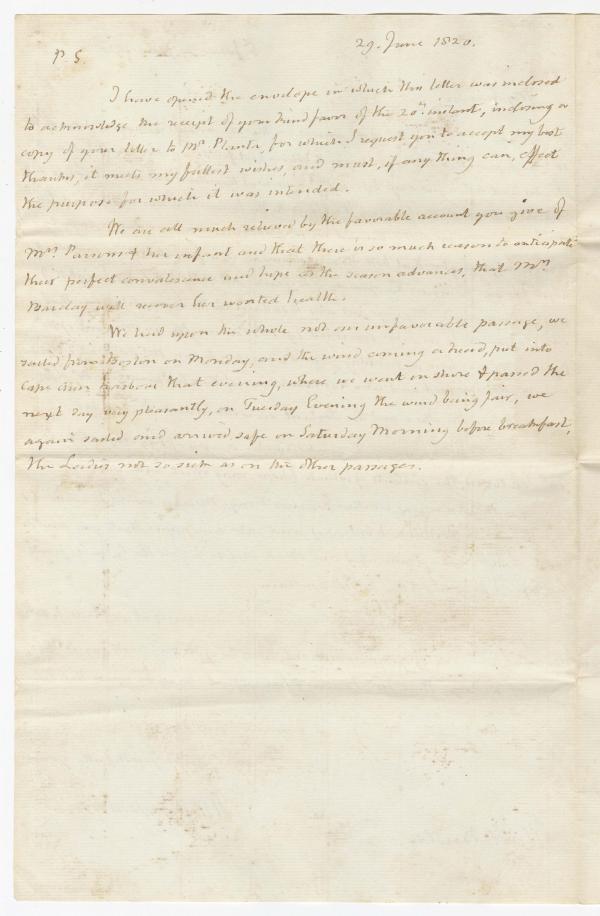 P. S.
29. June 1820.
I have opened the envelope in which this letter was inclosed
to acknowledge the receipt of your kind favor of the 20th instant, inclosing a
copy of your letter to Mr Planta, for which I request you to accept my best
thanks, it meets my fullest wishes, and must, if any thing can, effect
the purpose for which it was intended.
We are all much relieved by the favorable account you give of
Mrs Parsons & her infant and that there is so much reason to anticipate
their perfect convalescence and hope as the season advances, that Mrs
Barclay will recover her wonted health.
We had upon the whole not an unfavorable passage, we
sailed from Boston on Monday, and the wind coming ahead, put into
Cape Ann harbour that evening, where we went on shore & passed the
next day very pleasantly, on Tuesday Evening the wind being fair, we
again sailed and arrived safe on Saturday Morning before breakfast,
the Ladies not so sick as on the other passages.